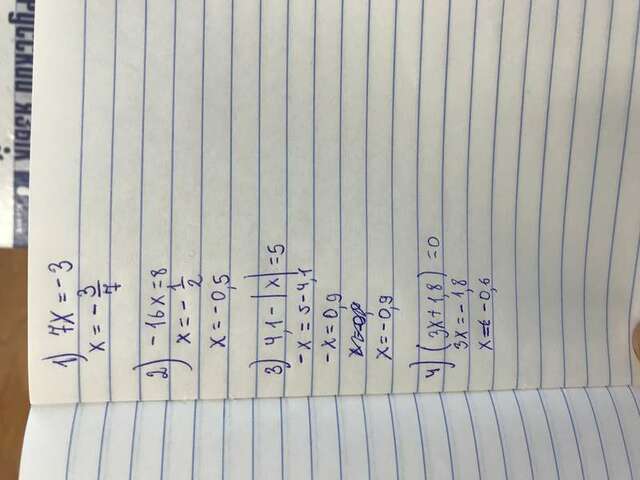 Русский язык
1) 7x = -3
x = - 3/7
2) -16x = 8
x = - 1/2
x = -0,5
3) 4,1 - |x| = 5
-x = 5 - 4,1
-x = 0,9
x = -0,9
4) (3x + 1,8) = 0
3x = -1,8
x = -0,6